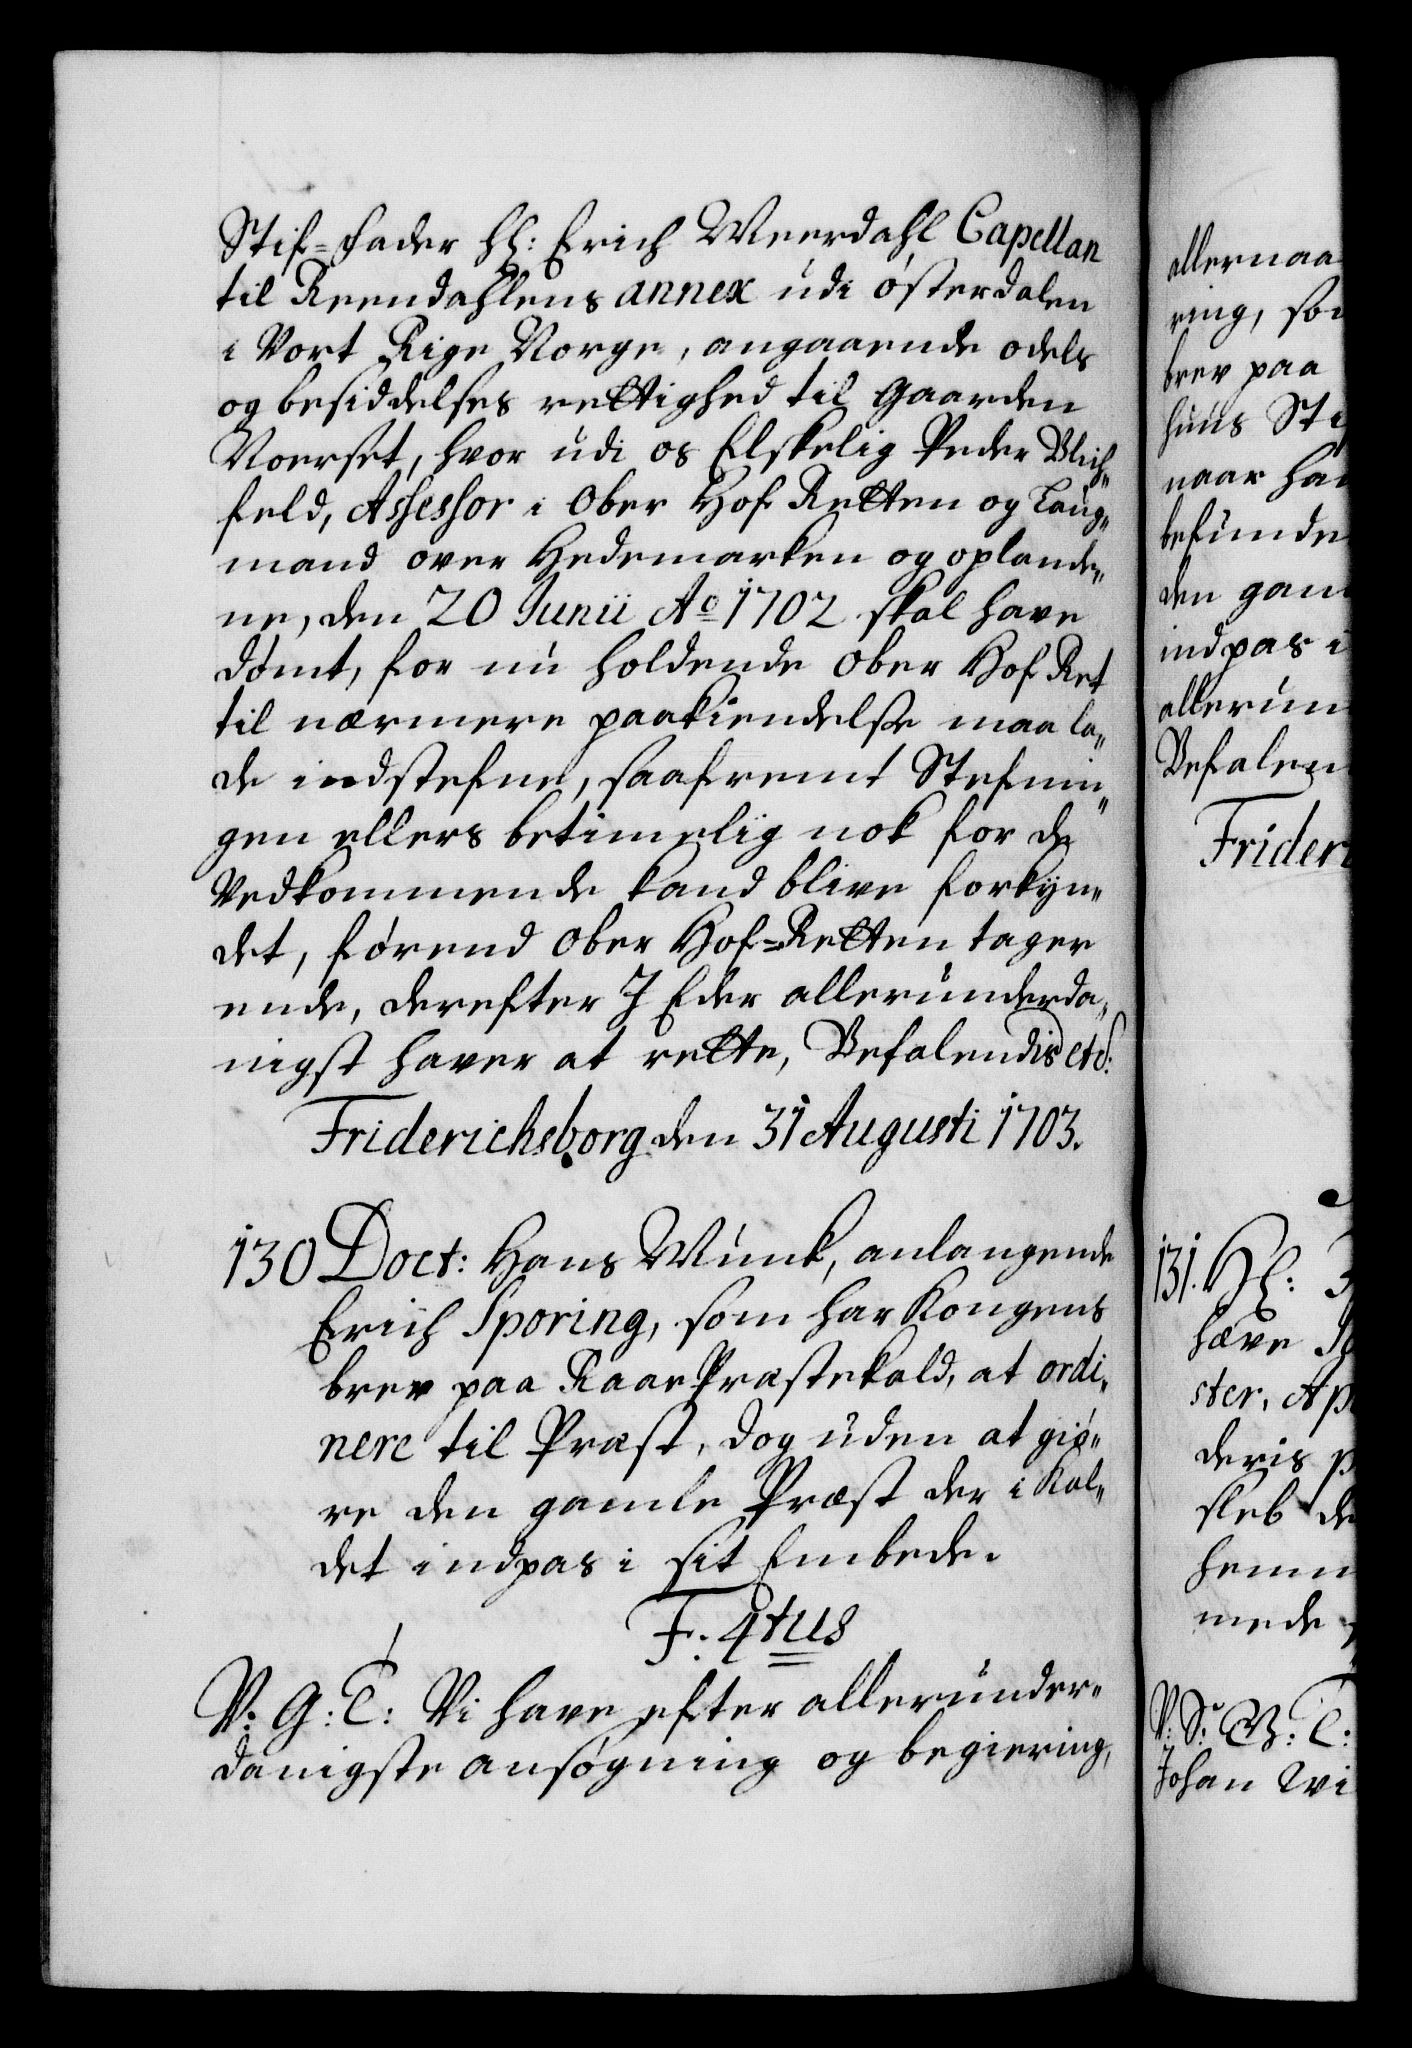 Stif=Fader Hl: Erich Meerdahl Capellan
til Reendahlens annex udi østerdalen
i Vort Rige Norge, angaaende odels
og besiddelses rettighed til Gaarden
Noerset, hvor udi os Elskelig Peder Blich„
feld, Assessor i Ober Hof Retten og Laug„
mand over Hedemarken og oplande„
ne, den 20 Junii Ao 1702 skal have
dømt, for nu holdende Ober Hof Ret
til nærmere paakiendelse maa la„
de indstefne, saafremt Stefnin„
gen ellers betimelig nok for de
Vedkommende kand blive forkyn„
det, førend Ober Hof=Retten tager
ende, derefter I Eder allerunderda„
nigst haver at rette, Befalendis etc:
Friderichsborg den 31 Augusti 1703.
130 Doct: Hans Munk, anlangende
Erich Sporing, som har Kongens
brev paa Raae Præstekald, at ordi„
nere til Præst, dog uden at giø„
re den gamle Præst der i Kal„
det indpas i sit Embede.
F. 4tus
V. G: T: Vi have efter allerunder„
danigste ansøgning og begiering,
allernaa
ring, som
brev paa
huus Sti
naar han
befunde
den gam
indpas i
allerun
Befalen
Frideri
131. Hl:
have
ster, Ap
deris p
sleb de
hemm
mede
V: S: G: T:
Johan Wi